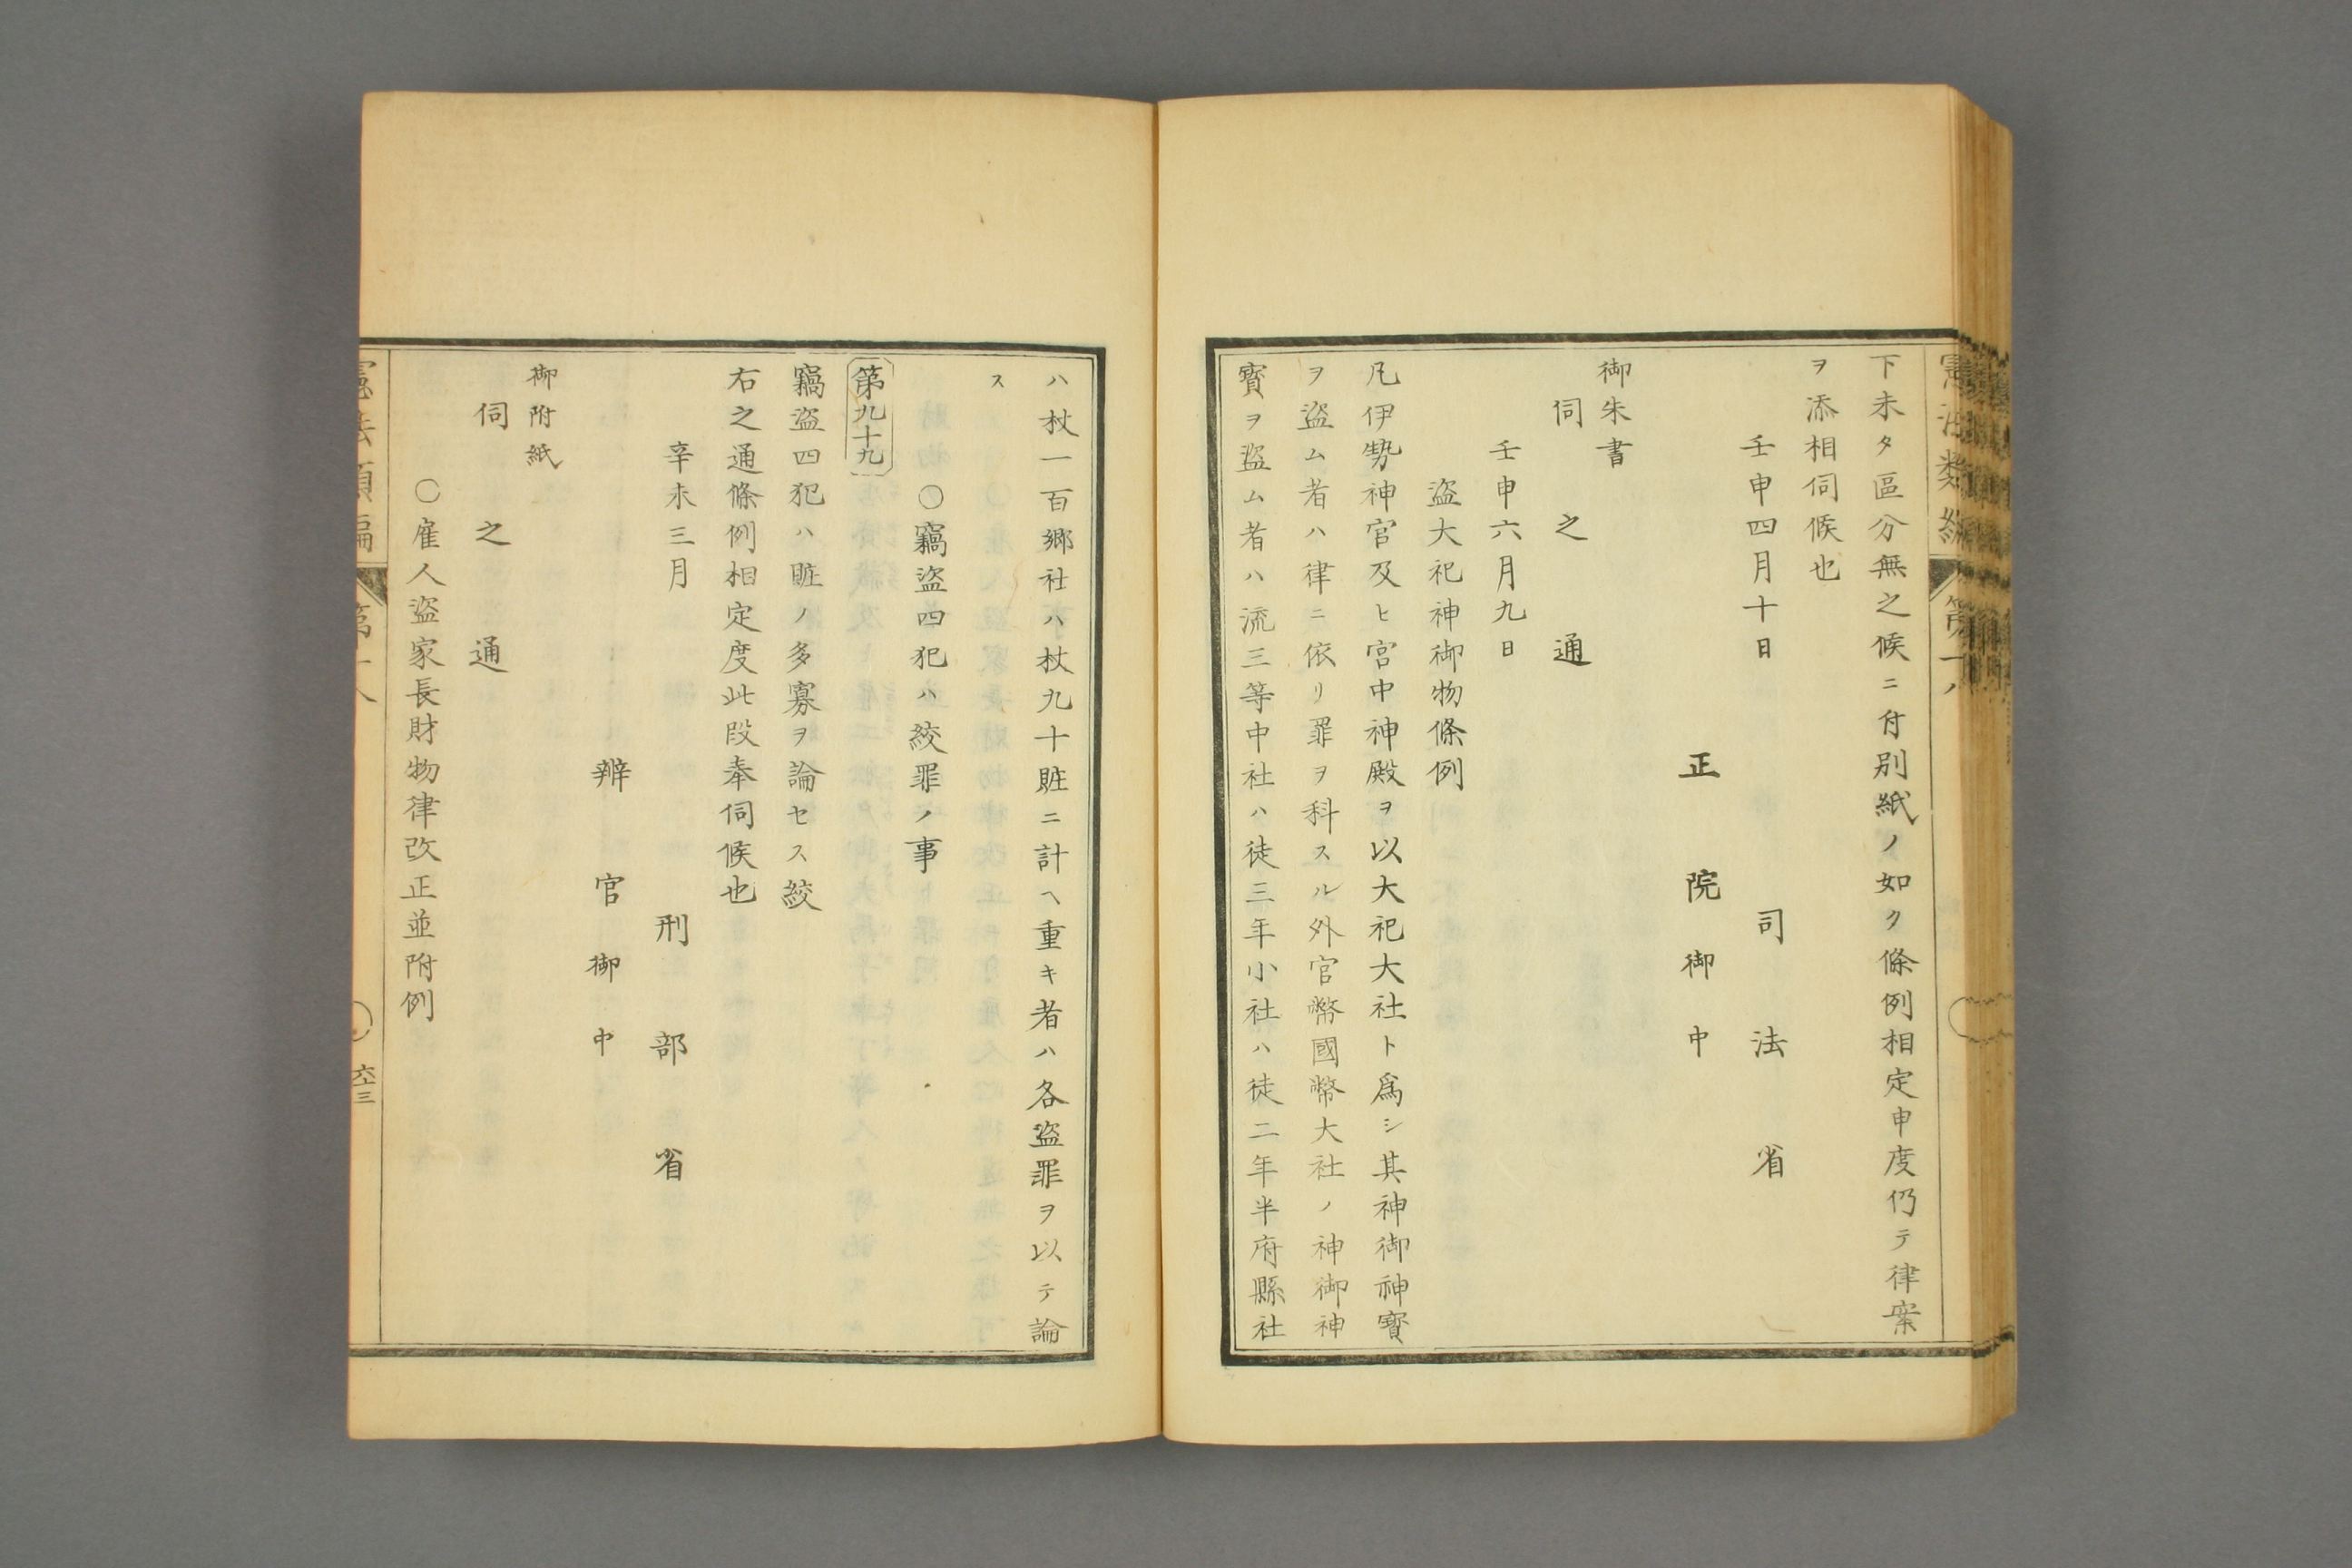 下未タ區分無之候ニ付別紙ノ如ク條例相定申度仍テ律案
ヲ添相伺候也
壬申四月十日
司法省
正院御中
御朱書
伺之通
壬申六月九日
盜大祀神御物條例
凡伊勢神官及ヒ宮中神殿ヲ以大祀大社ト爲シ其神御神寶
ヲ盜ム者ハ律ニ依リ罪ヲ科スル外官幣國幣大社ノ神御神
寶ヲ盜ム者ハ流三等中社ハ徒三年小社ハ徒二年半府縣社
ハ杖一百郷社ハ杖九十賍ニ計ヘ重キ者ハ各盜罪ヲ以テ論
ス
○竊盜四犯ハ絞罪ノ事
第九十九
竊盜四犯ハ賍ノ多寡ヲ論セス絞
右之通條例相定度此段奉伺候也
辛未三月
刑部省
辨官御中
御附紙
伺之通
○雇人盜家長財物律改正並附例